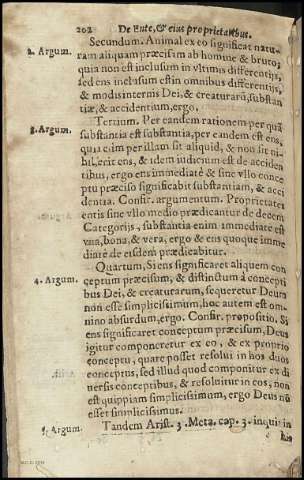 202 De Ente, & eius proprietatibus.
2. Argum.
Secundum. Animal ex eo significat natu-
ram aliquam præcisam ab homine & bruto;
quia non est inclusum in vltimis differentijs,
sed ens inclusum est in omnibus differentijs,
& modis internis Dei, & creaturarũ, substan
tiæ, & accidentium, ergo.
3. Argum.
Tertium. Per eandem rationem per quã
substantia est substantia, per eandem est ens,
quia cùm per illam sit aliquid, & non sit ni-
hil, erit ens, & idem iudicium est de acciden
tibus, ergo ens immediatè & sine vllo conce-
ptu præciso significabit substantiam, & acci
dentia. Confir. argumentum. Proprietates
entis sine vllo medio prædicantur de decem
Categorijs, substantia enim immediatè est
vna, bona, & vera, ergo & ens quoque imme
diatè de eisdem prædicabitur.
4. Argum.
Quartum, Si ens significaret aliquem con
ceptum præcisum, & distinctum à concepti
bus Dei, & creaturarum, sequeretur Deum
non esse simplicissimum, hoc autem est om-
nino absurdum, ergo. Confir. propositio, Si
ens significaret conceptum præcisum, Deus
igitur componeretur ex eo, & ex proprio
conceptu, quare posset resolui in hos duos
conceptus, sed illud quod componitur ex di
uersis conceptibus, & resoluitur in eos, non
est quippiam simplicissimum, ergo Deus nõ
esset simplicissimus.
5. Argum.
Tandem Arist. 3. Meta. cap. 3. inquit in